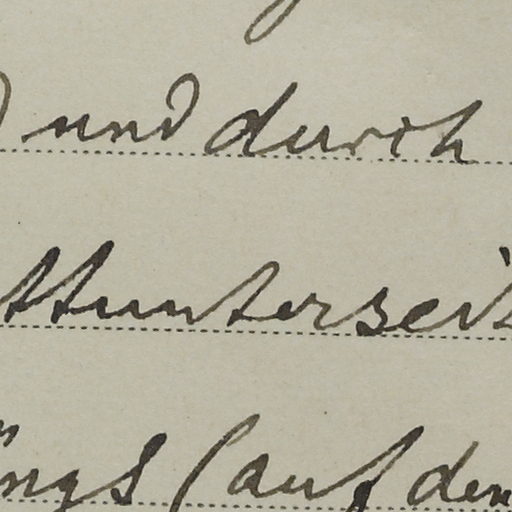 und durch
Hunterseit
ngs (auf den